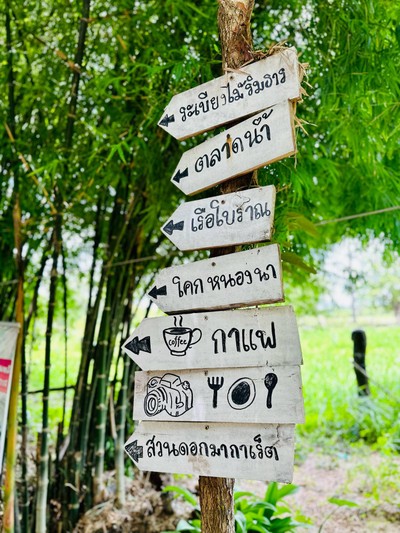 ระเบียงไม้ริมธาร
ตลาดน้ำ
เรือโบราณ
โคก หนองนา
coffee
กาแฟ
สวนดอกมากาเร็ต